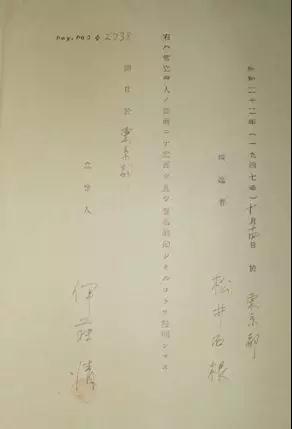 2738
昭和二十二年(一九四七年)十月 日 於 東京都
供述者 松井石根
右ハ當立會人ノ面前ニテ宣誓シ且ツ署名捺印シタルコトヲ證明シマス
同日於 東京都
立會人 伊藤清